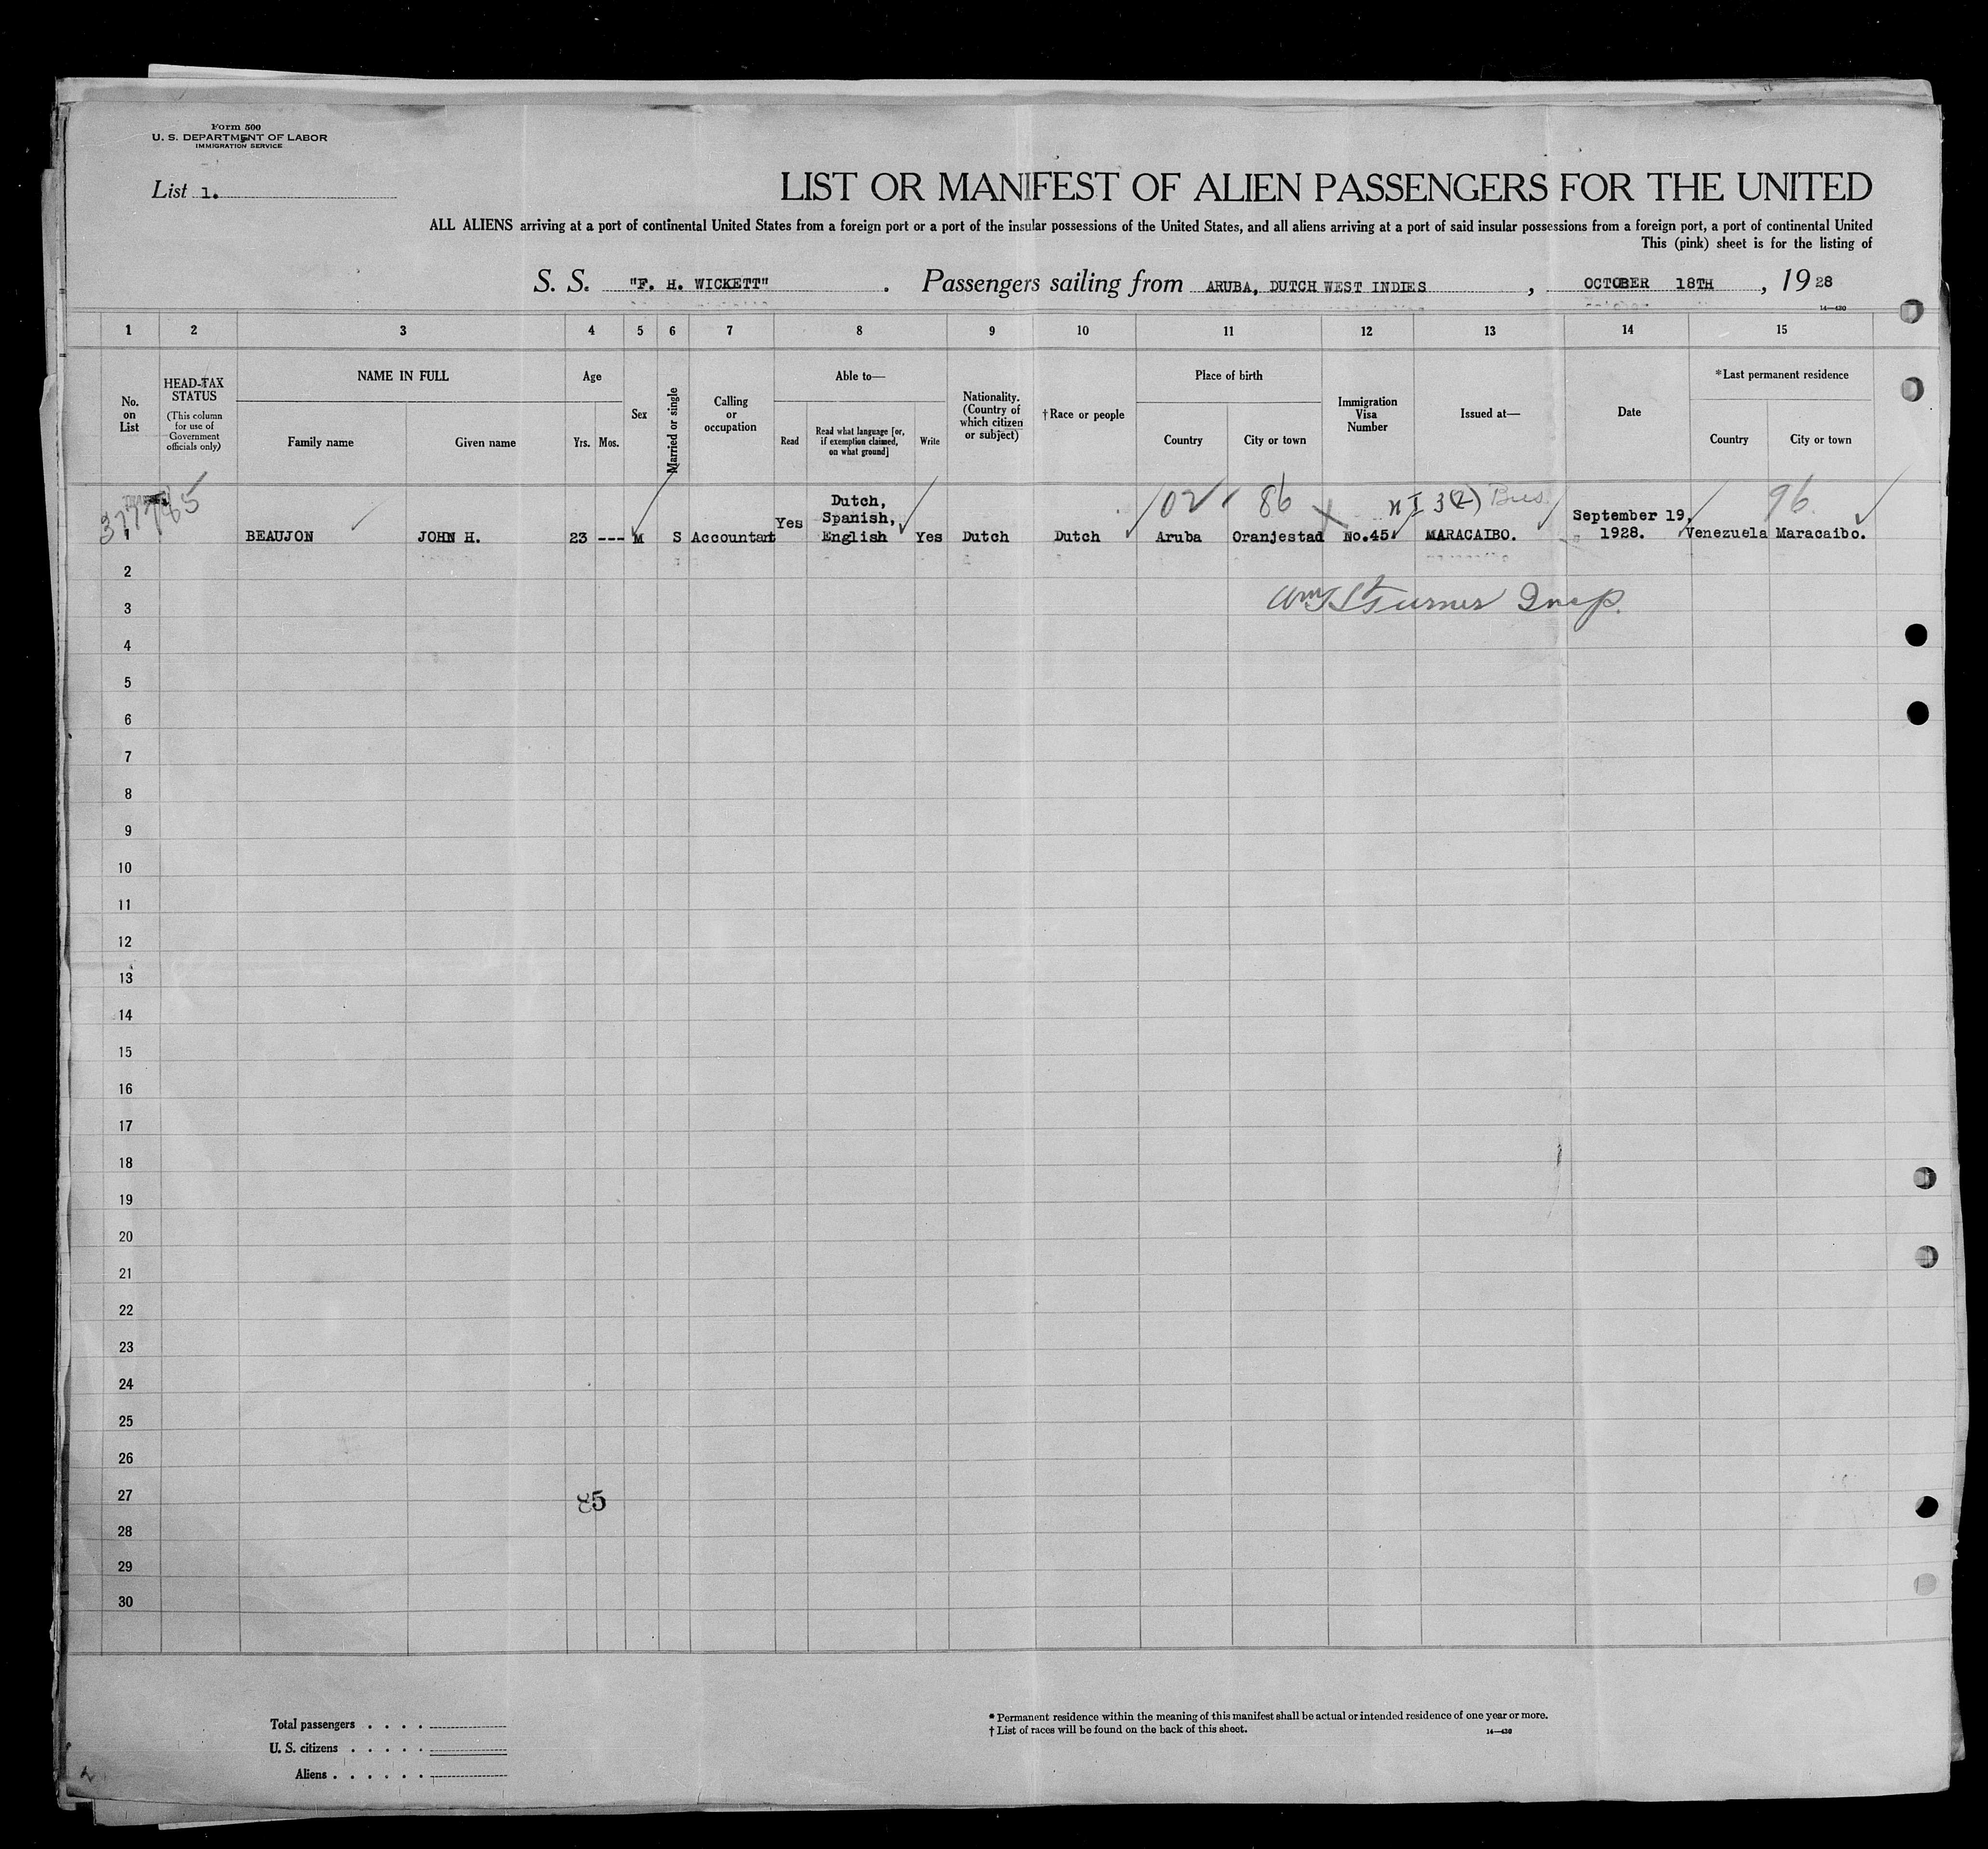 Form 500
U. S. DEPARTMENT OF LABOR
IMMIGRATION SERVICE
List 1.
LIST OR MANIFEST OF ALIEN PASSENGERS FOR THE UNITED
ALL ALIENS arriving at a port of continental United States from a foreign port or a port of the insular possessions of the United States, and all aliens arriving at a port of said insular possessions from a foreign port, a port of continental United
This (pink) sheet is for the listing of
S. S. "F. H. WICKETT". Passengers sailing from ARUBA, DUTCH WEST INDIES, OCTOBER 18TH, 1928
14—430
1 2 3 4 5 6 7 8 9 10 11 12 13 14 15
No. on List
HEAD-TAX STATUS
(This column for use of Government officials only)
NAME IN FULL
Family name
Given name
Age
Yrs. Mos.
Sex
Married or single
Calling or occupation
Able to—
Read
Read what language [or, if exemption claimed, on what ground]
Write
Nationality. (Country of which citizen or subject)
†Race or people
Place of birth
Country
City or town
Immigration Visa Number
Issued at—
Date
*Last permanent residence
Country
City or town
02 86 3(2) Bus. 96
1 BEAUJON JOHN H. 23 --- M S Accountant Yes Dutch, Spanish, English Yes Dutch Dutch Aruba Oranjestad No.45 MARACAIBO. September 19, 1928. Venezuela Maracaibo.
2
3 Turner Insp.
4
5
6
7
8
9
10
11
12
13
14
15
16
17
18
19
20
21
22
23
24
25
26
27
85
28
29
30
Total passengers . . . .
U. S. citizens . . . . .
Aliens . . . . . .
* Permanent residence within the meaning of this manifest shall be actual or intended residence of one year or more.
† List of races will be found on the back of this sheet.
14—430